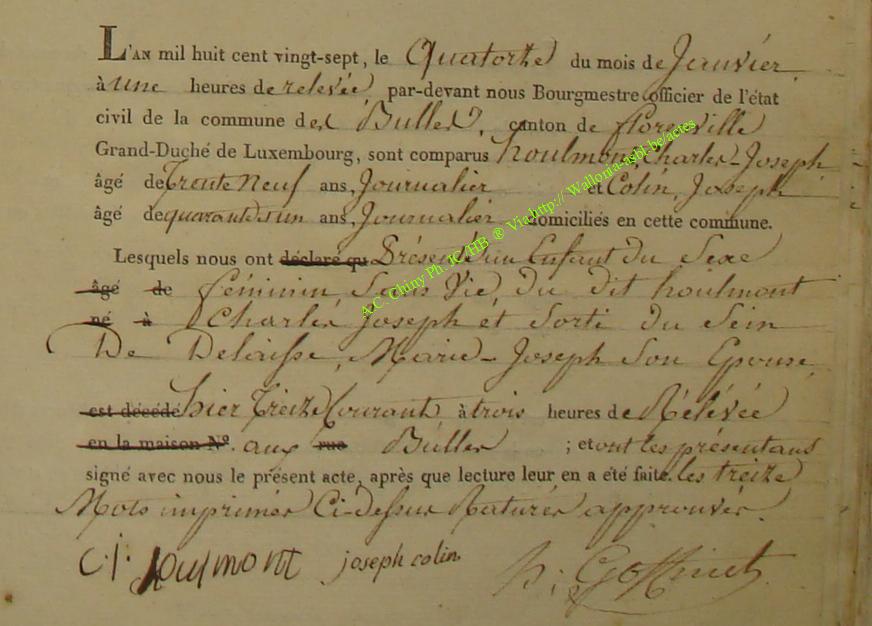 L'AN mil huit cent vingt-sept, le Quatorze du mois de Janvier
à une heures de relevée, par-devant nous Bourgmestre officier de l'état
civil de la commune des Bulles, canton de florenville
Grand-Duché de Luxembourg, sont comparus houlmont, Charles-Joseph
âgé de Trente Neuf ans, Journalier et Colin, Joseph
âgé de quarantesun ans, Journalier domiciliés en cette commune.
Lesquels nous ont déclaré qu Présenté un Enfant du Sexe
âgé de féminin Sans Vie, du dit houlmont
né à Charles Joseph et Sorti du Sein
De Delaisse, Marie-Joseph Son Epouse,
est décédé hier Treize Courant à trois heures de Rélévée
en la maison N°. aux rue Bulles ; et ont les présentans
signé avec nous le présent acte, après que lecture leur en a été faite. les treize
Mots imprimés Ci-dessus Raturés approuvés.
C. j. houlmont joseph colin h: Goffinet
A.C. Chiny Ph. IC/HB ® Via http:// Wallonia-asbl.be/actes